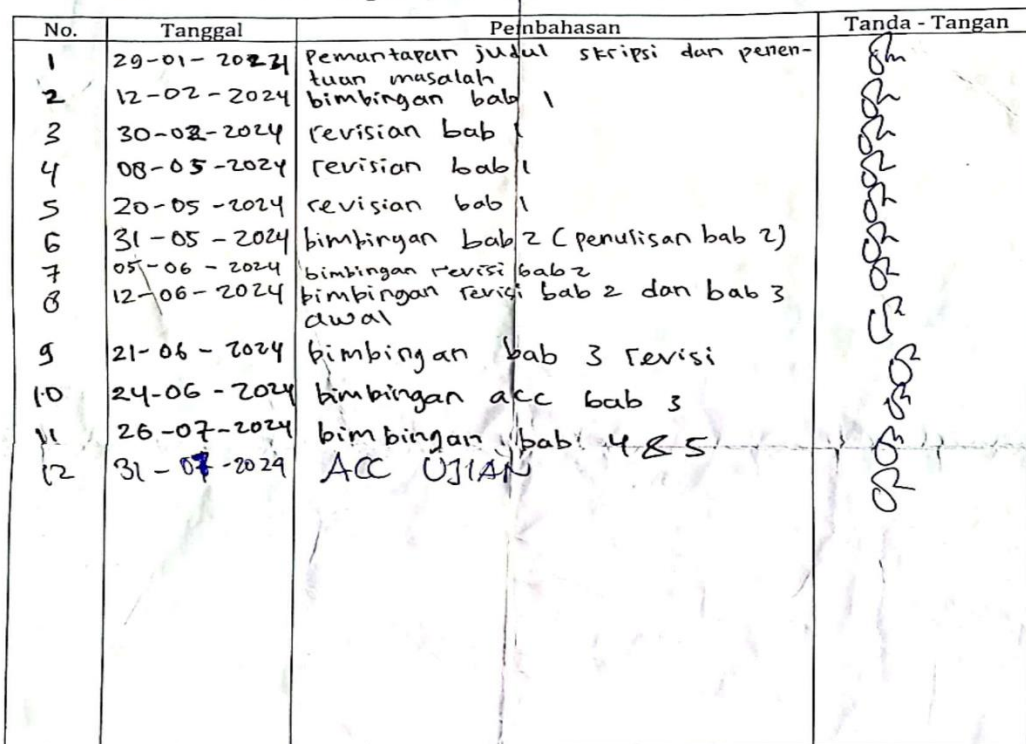 No. Tanggal Pembahasan Tanda - Tangan
1 29-01-2024 Pemantapan judul skripsi dan penen-
tuan masalah
2 12-02-2024 bimbingan bab 1
3 30-02-2024 revisian bab 1
4 08-05-2024 revisian bab 1
5 20-05-2024 revisian bab 1
6 31-05-2024 bimbingan bab 2 (penulisan bab 2)
7 05-06-2024 bimbingan revisi bab 2
8 12-06-2024 bimbingan revisi bab 2 dan bab 3
awal
9 21-06-2024 bimbingan bab 3 revisi
10 24-06-2024 bimbingan acc bab 3
11 26-07-2024 bimbingan bab 4 & 5
12 31-07-2024 ACC UJIAN